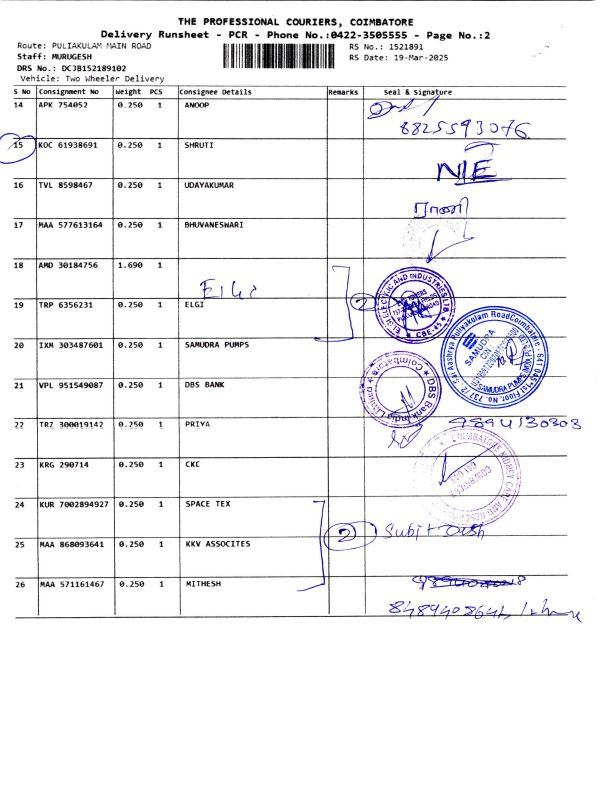 THE PROFESSIONAL COURIERS, COIMBATORE
Delivery Runsheet - PCR - Phone No.:0422-3505555 - Page No.:2
Route: PULIAKULAM MAIN ROAD
RS No.: 1521891
Staff: MURUGESH
RS Date: 19-Mar-2025
DRS No.: DCJB152189102
Vehicle: Two Wheeler Delivery
S No Consignment No Weight PCS Consignee Details Remarks Seal & Signature
14 APK 754052 0.250 1 ANOOP
8825593076
15 KOC 61938691 0.250 1 SHRUTI
NIE
16 TVL 8598467 0.250 1 UDAYAKUMAR
ராணி
17 MAA 577613164 0.250 1 BHUVANESWARI
18 AMD 30184756 1.690 1
Elgi
2
19 TRP 6356231 0.250 1 ELGI
20 IXM 303487601 0.250 1 SAMUDRA PUMPS
SAMUDRA
21 VPL 951549087 0.250 1 DBS BANK
DBS Bank India Limited
Coimbatore
22 TRZ 300019142 0.250 1 PRIYA
9894130303
23 KRG 290714 0.250 1 CKC
24 KUR 7002894927 0.250 1 SPACE TEX
2
25 MAA 868093641 0.250 1 KKV ASSOCITES
26 MAA 571161467 0.250 1 MITHESH